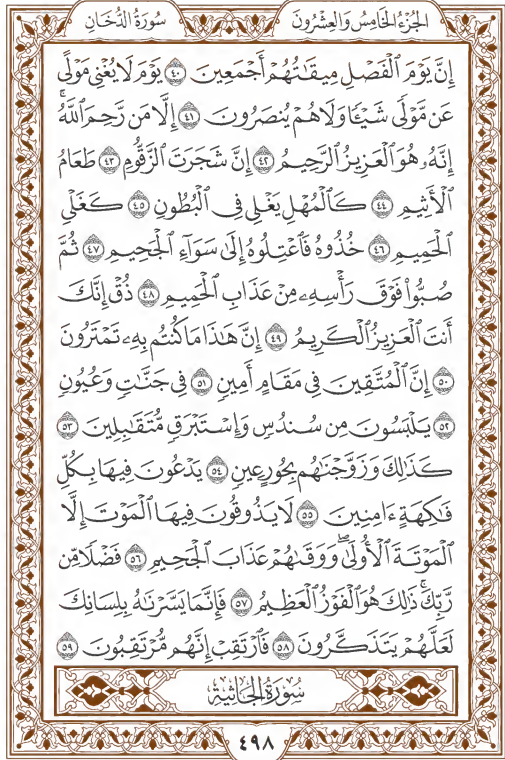 الجُزْءُ الخَامِسُ وَالعِشْرُونَ
سُورَةُ الدُّخَانِ
إِنَّ يَوْمَ ٱلْفَصْلِ مِيقَٰتُهُمْ أَجْمَعِينَ ٤٠ يَوْمَ لَا يُغْنِى مَوْلًى
عَن مَّوْلًى شَيْـًٔا وَلَا هُمْ يُنصَرُونَ ٤١ إِلَّا مَن رَّحِمَ ٱللَّهُۚ
إِنَّهُۥ هُوَ ٱلْعَزِيزُ ٱلرَّحِيمُ ٤٢ إِنَّ شَجَرَتَ ٱلزَّقُّومِ ٤٣ طَعَامُ
ٱلْأَثِيمِ ٤٤ كَٱلْمُهْلِ يَغْلِى فِى ٱلْبُطُونِ ٤٥ كَغَلْىِ
ٱلْحَمِيمِ ٤٦ خُذُوهُ فَٱعْتِلُوهُ إِلَىٰ سَوَآءِ ٱلْجَحِيمِ ٤٧ ثُمَّ
صُبُّوا۟ فَوْقَ رَأْسِهِۦ مِنْ عَذَابِ ٱلْحَمِيمِ ٤٨ ذُقْ إِنَّكَ
أَنتَ ٱلْعَزِيزُ ٱلْكَرِيمُ ٤٩ إِنَّ هَٰذَا مَا كُنتُم بِهِۦ تَمْتَرُونَ
٥٠ إِنَّ ٱلْمُتَّقِينَ فِى مَقَامٍ أَمِينٍ ٥١ فِى جَنَّٰتٍ وَعُيُونٍ
٥٢ يَلْبَسُونَ مِن سُندُسٍ وَإِسْتَبْرَقٍ مُّتَقَٰبِلِينَ ٥٣
كَذَٰلِكَ وَزَوَّجْنَٰهُم بِحُورٍ عِينٍ ٥٤ يَدْعُونَ فِيهَا بِكُلِّ
فَٰكِهَةٍ ءَامِنِينَ ٥٥ لَا يَذُوقُونَ فِيهَا ٱلْمَوْتَ إِلَّا
ٱلْمَوْتَةَ ٱلْأُولَىٰۖ وَوَقَىٰهُمْ عَذَابَ ٱلْجَحِيمِ ٥٦ فَضْلًا مِّن
رَّبِّكَۚ ذَٰلِكَ هُوَ ٱلْفَوْزُ ٱلْعَظِيمُ ٥٧ فَإِنَّمَا يَسَّرْنَٰهُ بِلِسَانِكَ
لَعَلَّهُمْ يَتَذَكَّرُونَ ٥٨ فَٱرْتَقِبْ إِنَّهُم مُّرْتَقِبُونَ ٥٩
سُورَةُ الجَاثِيَةِ
٤٩٨